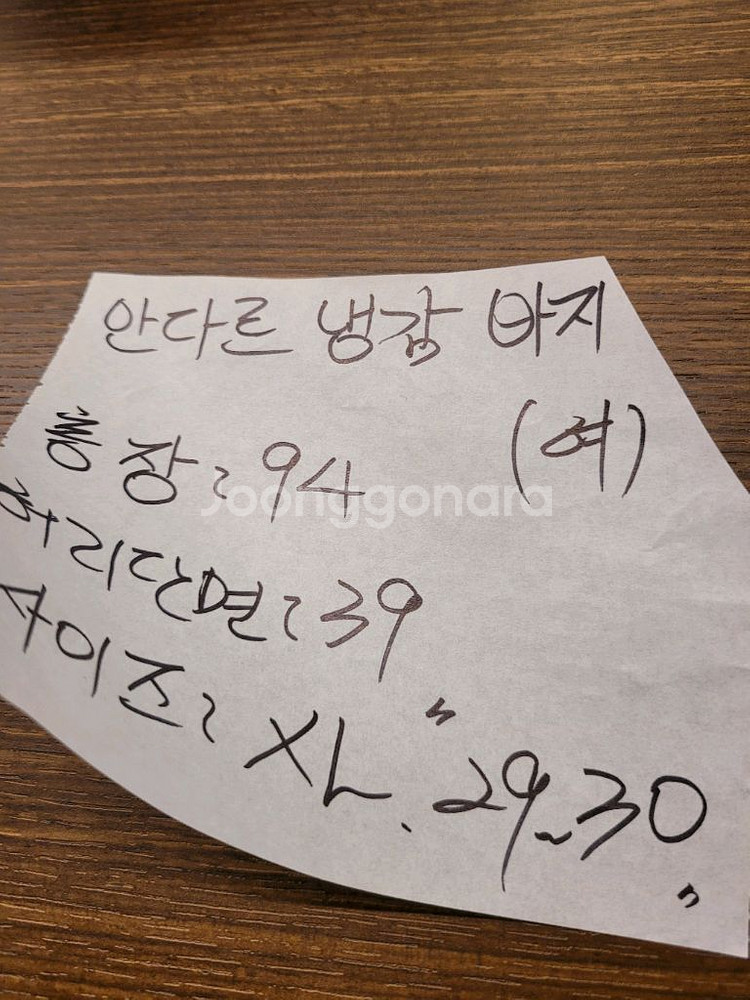 안다르 냉감 바지
(여)
총장: 94
허리단면: 39
사이즈: XL. "29~30"
Joonggonara